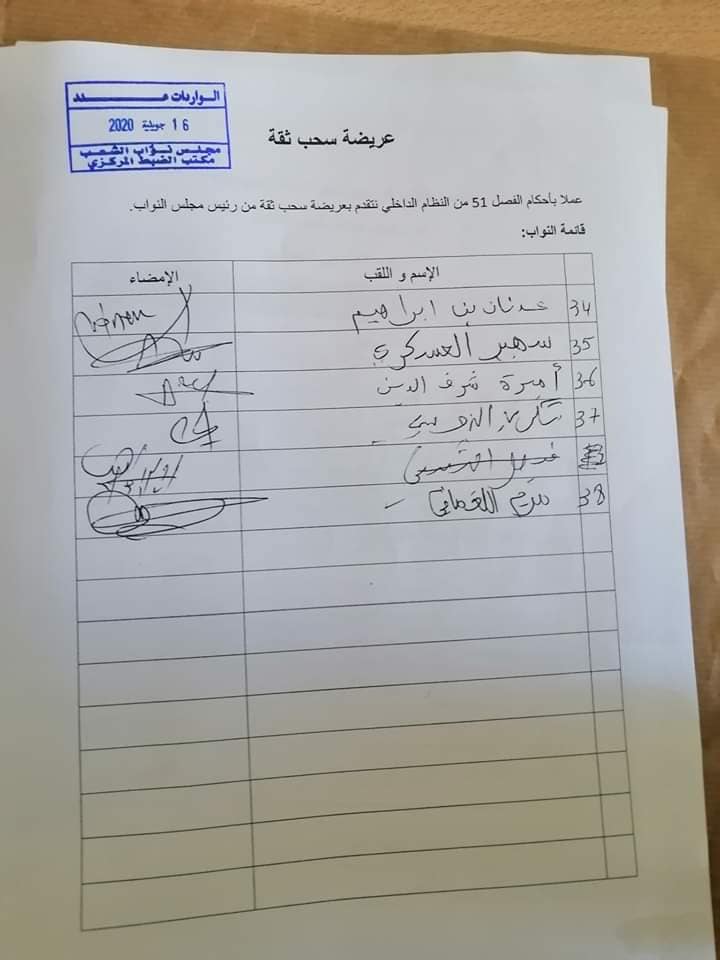 الواردات عـــدد
16 جويلية 2020
مجلس نواب الشعب
مكتب الضبط المركزي
عريضة سحب ثقة
عملا بأحكام الفصل 51 من النظام الداخلي نتقدم بعريضة سحب ثقة من رئيس مجلس النواب.
قائمة النواب:
الإسم و اللقب الإمضاء
34 عدنان بن ابراهيم
35 سهير العسكري
36 أميرة شرف الدين
37 الزوبي
38 مريم اللغماني